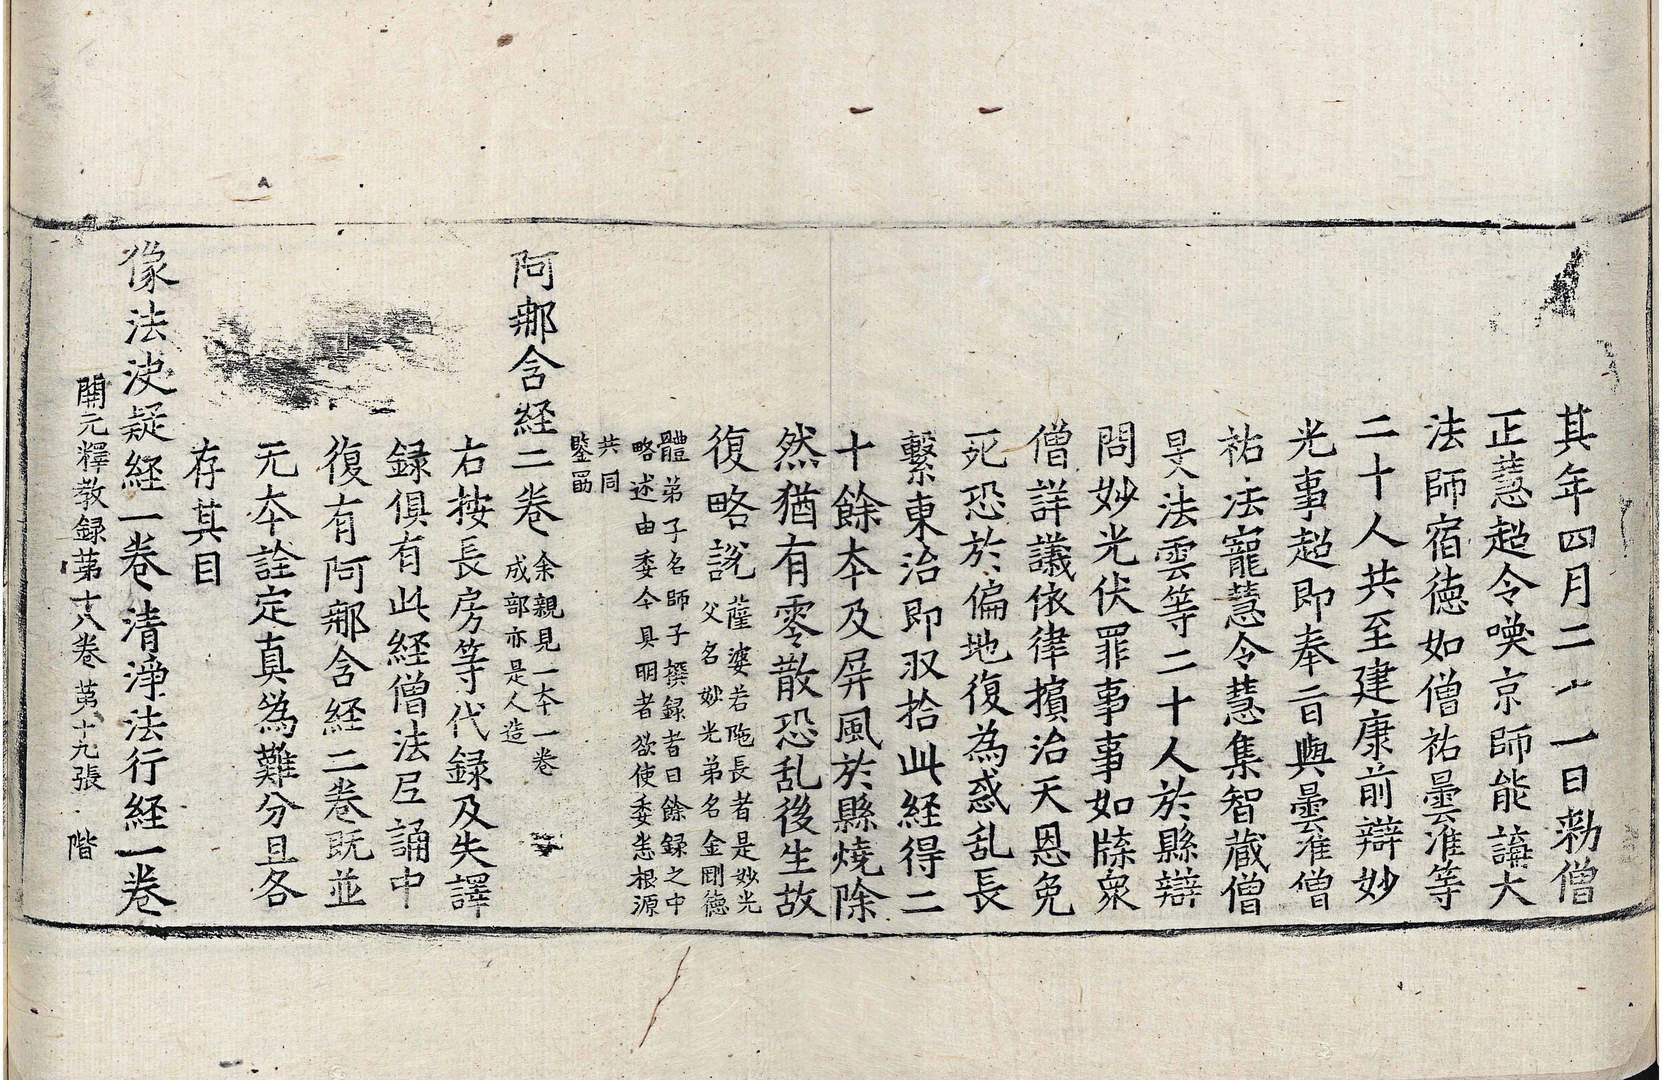 其年四月二十一日勑僧
正慧超令喚京師能講大
法師宿德如僧祐曇准等
二十人共至建康前辯妙
光事超即奉旨與曇准僧
祐法寵慧令慧集智藏僧
旻法雲等二十人於縣辯
問妙光伏罪事事如牒衆
僧詳議依律擯治天恩免
死恐於偏地復為惑乱長
繫東治即収拾此経得二
十餘本及屏風於縣燒除
然猶有零散恐乱後生故
復略説薩婆若陁長者是妙光
父名妙光弟名金剛德
體弟子名師子撰録者曰餘録之中
略述由委今具明者欲使委悉根源
共同
鑒焉
阿那含経二卷余親見一本一卷
成部亦是人造
右按長房等代録及失譯
録俱有此経僧法尼誦中
復有阿那含経二卷既並
无本詮定真為難分且各
存其目
像法決疑経一卷清淨法行経一卷
開元釋教録苐十八卷 苐十九張 階